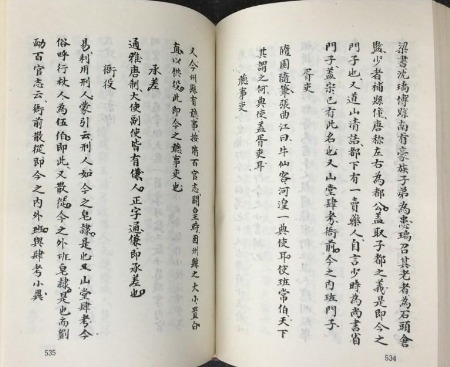 梁書沈瑀傳縣南有豪族子弟為患瑀召其老者為石頭倉
監少者補縣僮唐稱左右為都公蓋取子都之義是即今之
門子也又道山清話都下有一賣藥人自言少時為尚書省
門子蓋宗已有此名也又山堂肆考衙前今之內班門子
胥吏
隨園隨筆張曲江曰牛仙客河湟一典使耳使班常伯天下
其謂之何典使蓋胥吏耳
聽事吏
又今州縣有聽事按隋百官志開皇時因州縣之大小置白
直以供役此即今之聽事吏也
承差
通雅唐制大使副使皆有傔人正字通傔即承差也
衙役
易利用刑人蒙引云刑人如今之皂隸是也又山堂肆考今
俗呼行杖人為伍伯即此又散從今之外班皂隸是也而劉
勔百官志云衙前散從即今之內外班與肆考小異
534
535